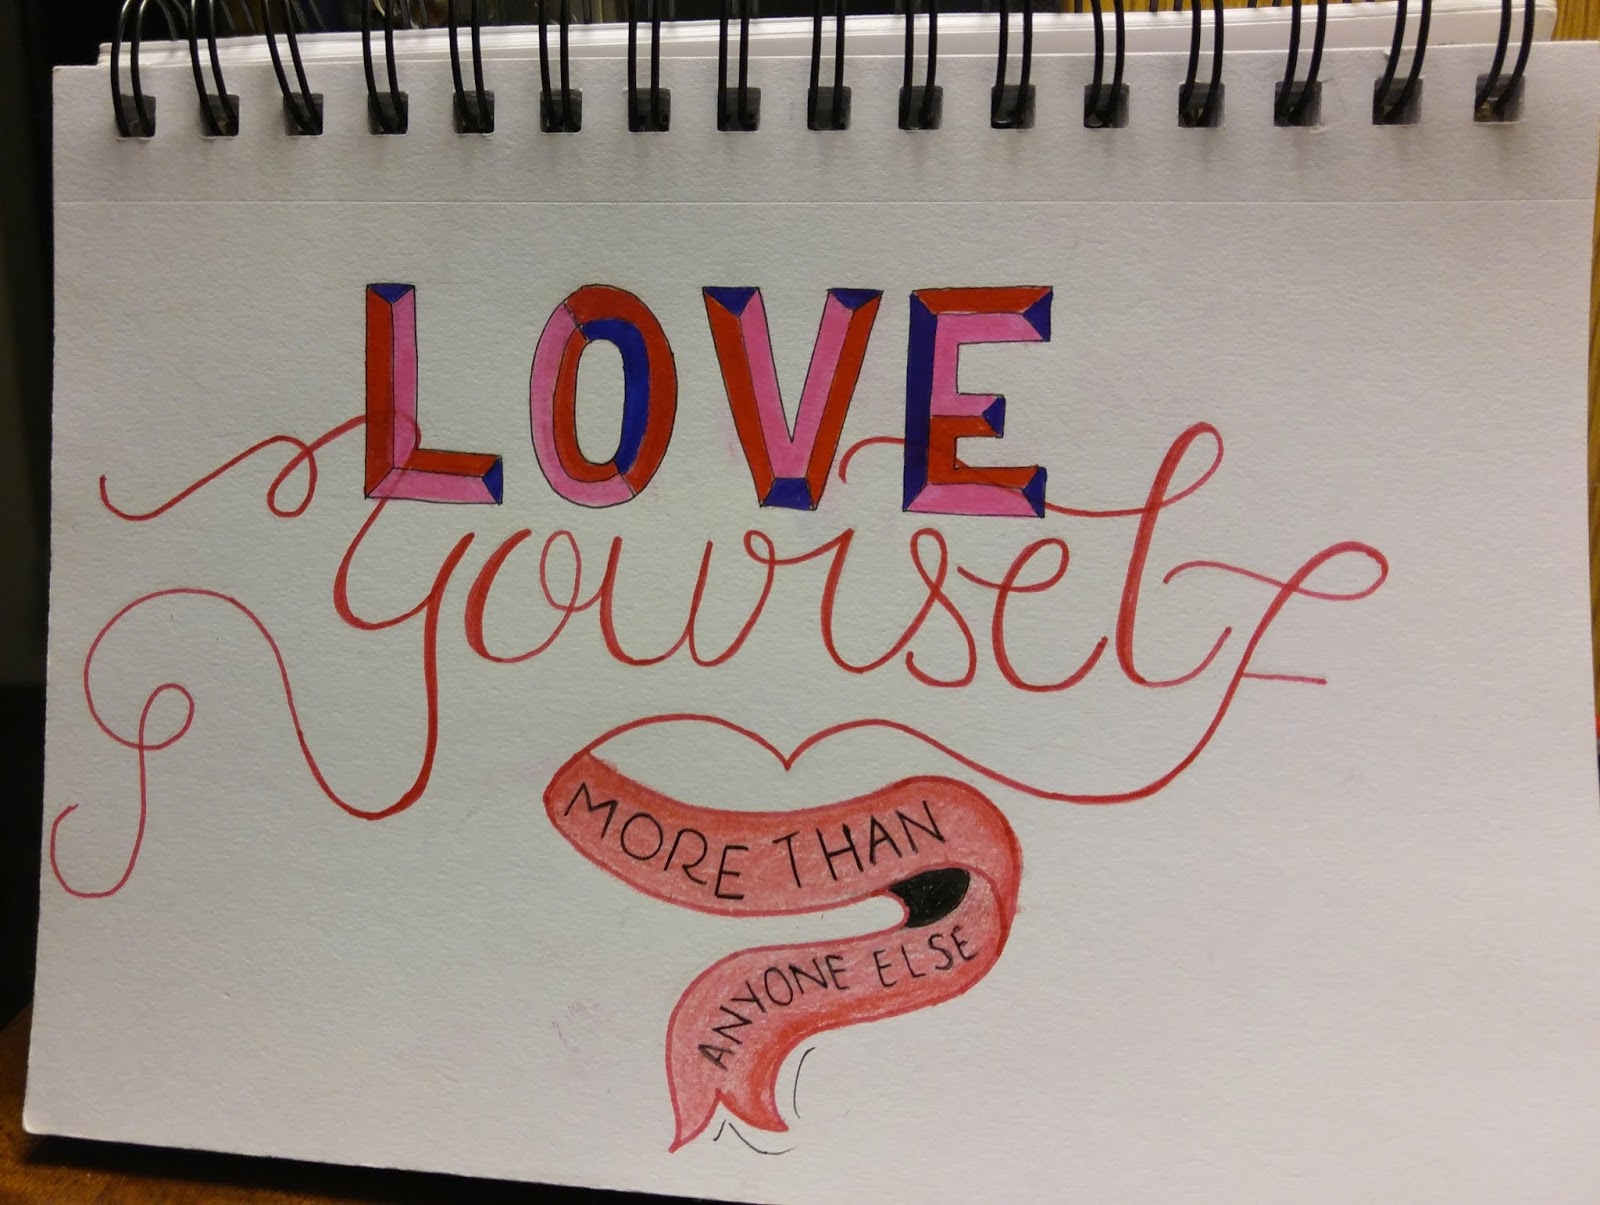 LOVE
yourself
MORE THAN
ANYONE ELSE